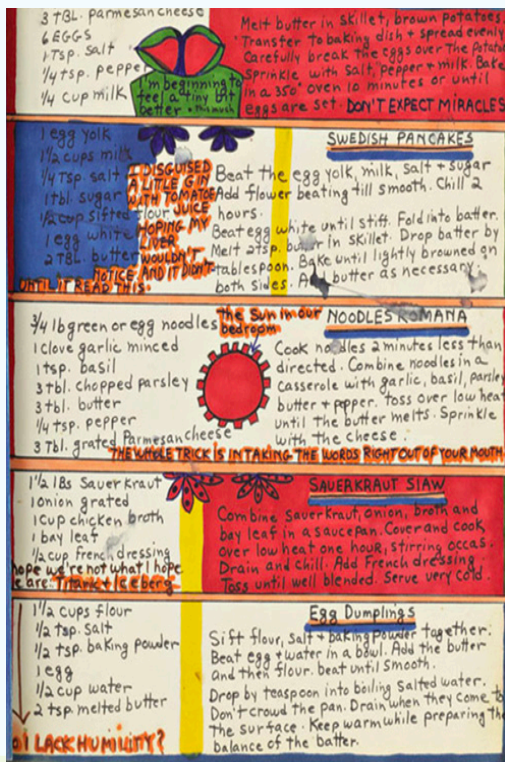 3 TBL. parmesan cheese
6 EGGS
1 Tsp. salt
1/4 tsp. pepper
1/4 cup milk
I'm beginning to
feel a tiny bit
better
Melt butter in skillet, brown potatoes.
Transfer to baking dish + spread evenly
Carefully break the eggs over the Potato
sprinkle with salt, Pepper + milk. Bake
in a 350° oven 10 minutes or until
eggs are set. DON'T EXPECT MIRACLES
1 egg yolk
1 1/2 cups milk
1/4 Tsp salt
1 tbl. sugar
1/2 cup sifted flour
1 egg white
2 TBL. butter
I DISGUISED
A LITLE GIN
WITH TOMATOE
JUICE
HOPING MY
LIVER
WOULDN'T
NOTICE. AND IT DIDN'T
UNTIL IT READ THIS.
SWEDISH PANCAKES
Beat the egg yolk, milk, salt + sugar
Add flower beating till smooth. Chill 2
hours.
Beat egg white until stiff. Fold into batter.
Melt 2tsp. butter in skillet. Drop batter by
tablespoon. Bake until lightly browned on
both sides. Add butter as necessary.
3/4 lb green or egg noodles
1 clove garlic minced
1 tsp. basil
3 tbl. chopped parsley
3 tbl. butter
1/4 tsp. pepper
3 Tbl. grated Parmesan cheese
the sun in our
bedroom
NOODLES ROMANA
Cook noodles 2 minutes less than
directed. Combine noodles in a
casserole with garlic, basil, parsley
butter + pepper. Toss over low heat
until the butter melts. Sprinkle
with the cheese.
THE WHOLE TRICK IS IN TAKING THE WORDS RIGHT OUT OF YOUR MOUTH
1 1/2 lBs Sauerkraut
1 onion grated
1 cup chicken broth
1 bay leaf
1/2 cup French dressing
hope we're not what I hope
we are: Titanic + Iceberg
SAUERKRAUT SLAW
Combine Sauerkraut, onion, broth and
bay leaf in a saucepan. Cover and cook
over low heat one hour, stirring occas.
Drain and chill. Add French dressing
Toss until well blended. Serve very cold.
1 1/2 cups flour
1/2 tsp. salt
1/2 tsp. baking powder
1 egg
1/2 cup water
2 tsp. melted butter
I LACK HUMILITY?
Egg Dumplings
Sift flour, salt + baking Powder together.
Beat egg + water in a bowl. Add the butter
and then flour. beat until smooth.
Drop by teaspoon into boiling salted water.
Don't crowd the pan. Drain when they come to
the surface. Keep warm while preparing the
balance of the batter.